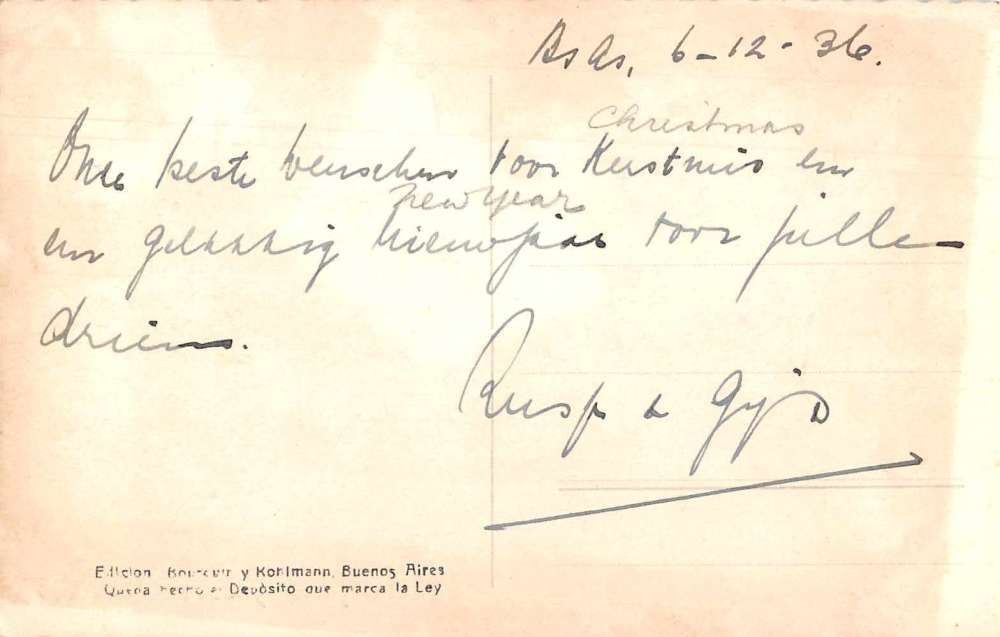 Bs As, 6-12-36.
Christmas
Onze beste wenschen voor Kerstmis en
new year
een gelukkig Nieuwjaar voor jullie
drieën.
& Gijs
Edicion Bourquin y Kohlmann, Buenos Aires
Queda hecho el Depósito que marca la Ley